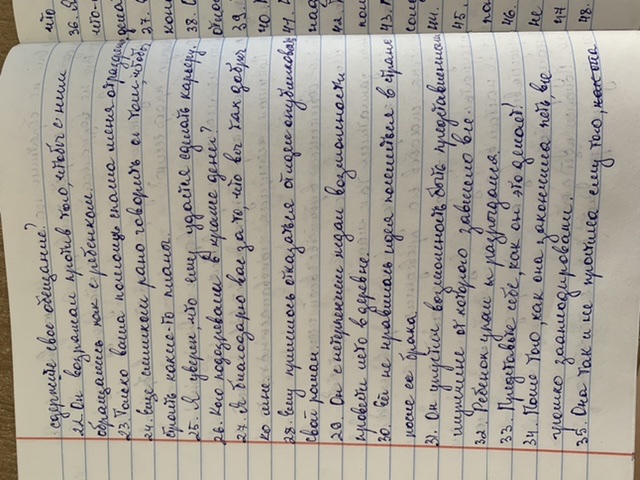 сдержите свое обещание?
22. Он возражал против того, чтобы с ним
обращались как с ребенком.
23. Только ваша помощь спасла меня
24. Еще слишком рано говорить о том, чтобы
строить какие-то планы.
25. Я уверен, что ему удастся сделать карьеру.
26. Кого подозревали в краже денег?
27. Я благодарю вас за то, что вы так добры
ко мне.
28. Ему пришлось отказаться от идеи опубликовать
свой роман
29. Он с нетерпением ждал возможности
провести лето в деревне.
30. Ей не нравилась идея поселиться в
после ее брака.
31. Он упустил возможность быть представленным
мужчине от которого зависело все.
32. Ребенок упал и разрыдался.
33. Представьте себе, как он это делает!
34. После того, как она закончила петь, все
громко зааплодировали.
35. Она так и не простила ему того,
что
36. Я
что-
37.
38. О
39.
40
41.
42
43.
44.
45.
46.
не
47
48.